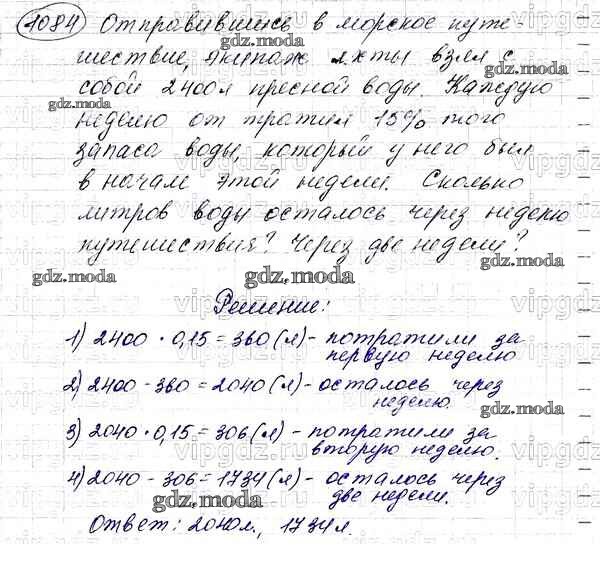 1084 Отправившись в морское путе-
шествие, экипаж яхты взял с
собой 2400л пресной воды. Каждую
неделю он тратил 15% того
запаса воды, который у него был
в начале этой недели. Сколько
литров воды осталось через неделю
путешествия? Через две недели?
Решение:
1) 2400 · 0,15 = 360 (л) - потратили за
первую неделю
2) 2400 - 360 = 2040 (л) - осталось через
неделю.
3) 2040 · 0,15 = 306 (л) - потратили за
вторую неделю.
4) 2040 - 306 = 1734 (л) - осталось через
две недели.
Ответ: 2040л., 1734л.
gdz.moda
vipgdz.ru